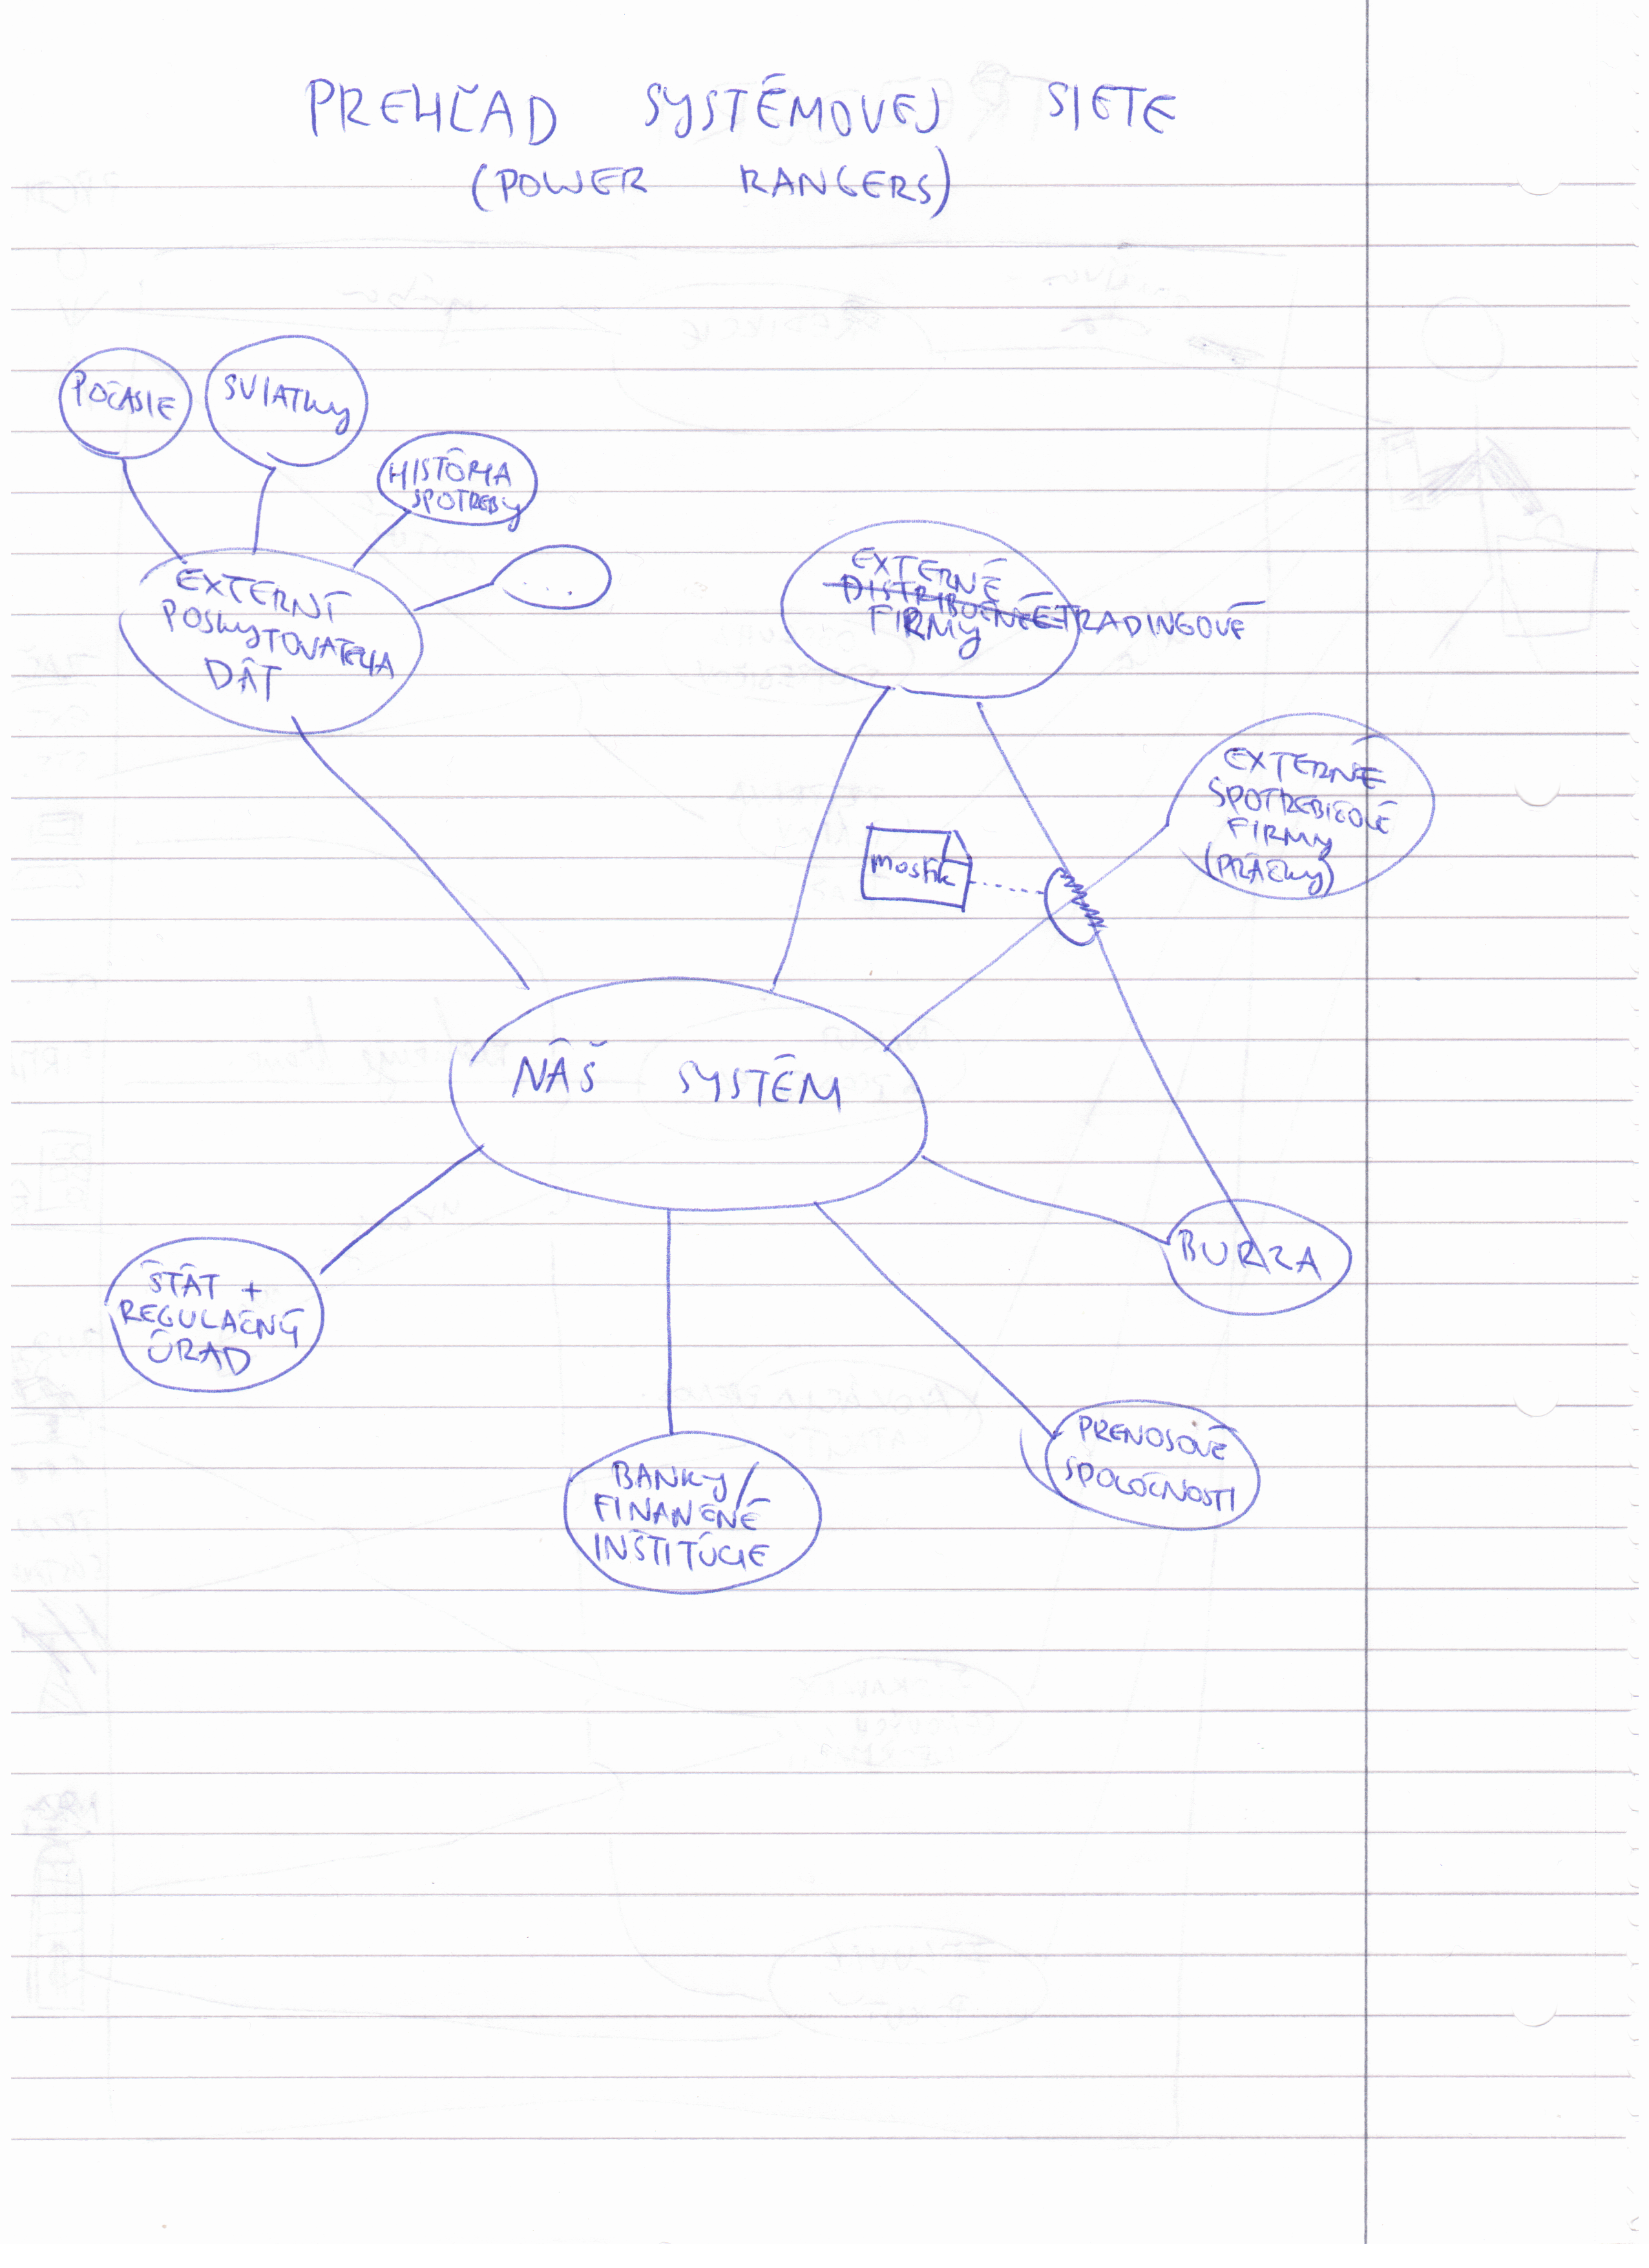 PREHĽAD SYSTÉMOVEJ SIETE
(POWER RANGERS)
POČASIE
SVIATKY
HISTÓRIA
SPOTREBY
...
EXTERNÍ
POSKYTOVATELIA
DÁT
EXTERNÉ
DISTRIBUČNÉ TRADINGOVÉ
FIRMY
EXTERNÉ
SPOTREBIČOVÉ
FIRMY
(PRÁČKY)
mostík
NÁŠ SYSTÉM
BURZA
ŠTÁT +
REGULAČNÝ
ÚRAD
PRENOSOVÉ
SPOLOČNOSTI
BANKY/
FINANČNÉ
INŠTITÚCIE